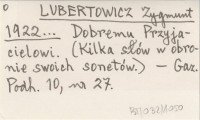 LUBERTOWICZ Zygmunt
1922... Dobremu Przyja-
cielowi. (Kilka słów w obro-
nie swoich sonetów.) – Gaz.
Podh. 10, nr 27.